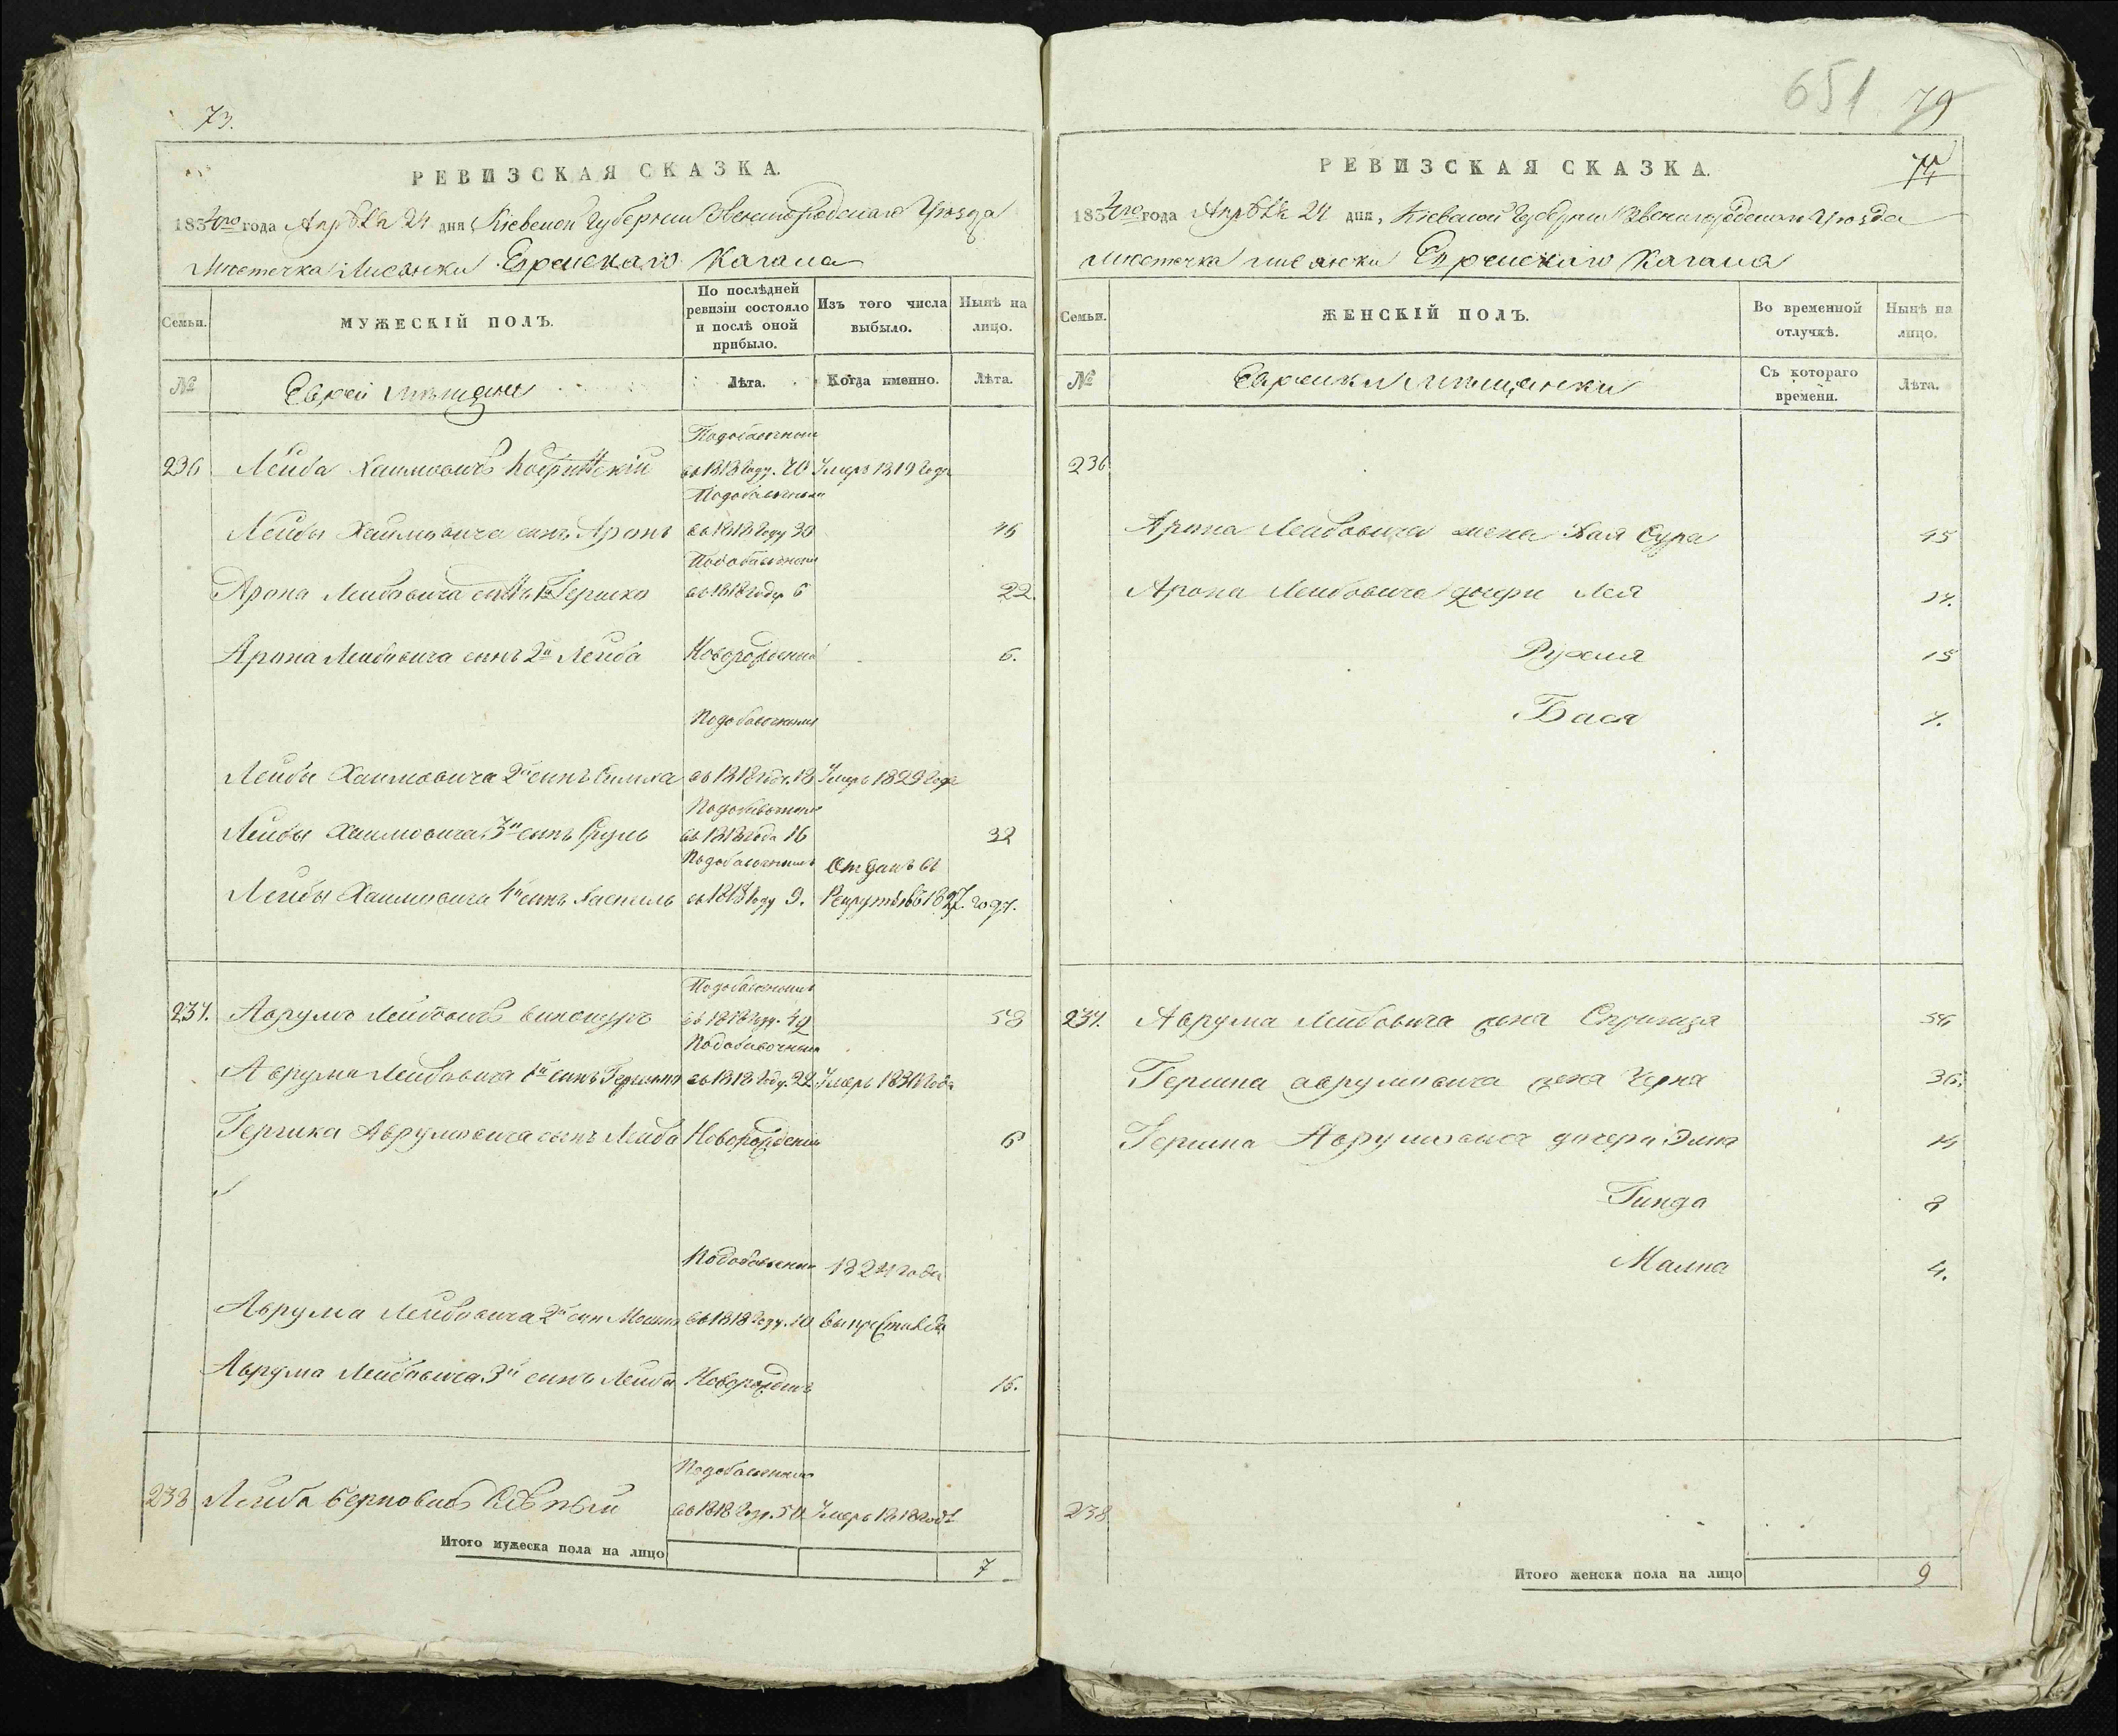 73.
РЕВИЗСКАЯ СКАЗКА.
1834го года Апрѣля 24 дня Кіевской Губерніи Звенигородскаго Уѣзда
Мѣстечка Лисянки Еврейскаго Кагала
Семьи.
МУЖЕСКІЙ ПОЛЪ.
По послѣдней ревизіи состояло и послѣ оной прибыло.
Изъ того числа выбыло.
Нынѣ на лицо.
№
Еврей мѣщане
Лѣта.
Когда именно.
Лѣта.
Подобавочнымъ
236 Лейба Хаимовичъ въ 1818 году. 70 Умеръ 1819 года
Подобавочнымъ
Лейбы Хаимовича сынъ Аронъ въ 1818 году 30 46
Подобавочнымъ
Арона Лейбовича сынъ 1й Гершко въ 1818 году 6 22.
Арона Лейбовича сынъ 2й Лейба Новорожденный 6.
Подобавочнымъ
Лейбы Хаимовича 2й сынъ Симха въ 1818 году 18 Умеръ 1829 года
Подобавочнымъ
Лейбы Хаимовича 3й сынъ Сруль въ 1818 года 16 32
Подобавочнымъ Отданъ въ
Лейбы Хаимовича 4й сынъ въ 1818 году 9. Рекруты въ 1827. году.
Подобавочнымъ
237. Аврумъ Лейбовичъ Винокуръ въ 1818 году. 42 58
Подобавочнымъ
Аврума Лейбовича 1й сынъ Гершко въ 1818 году. 22 Умеръ 1830 года
Гершка Аврумовича сынъ Лейба Новорожденный 6
Подобавочнымъ 1824 года
Аврума Лейбовича 2й сын Мошко въ 1818 году. 10
Аврума Лейбовича 3й сынъ Лейба Новорожденъ 16.
Подобавочнымъ
238 Лейба Берковичъ въ 1818 году. 50 Умеръ 1818 года
Итого мужеска пола на лицо 7
651 79
74
РЕВИЗСКАЯ СКАЗКА.
1834го года Апрѣля 24 дня, Кіевской Губерніи Звенигородскаго Уѣзда
Мѣстечка Лисянки Еврейскаго Кагала
Семьи.
ЖЕНСКІЙ ПОЛЪ.
Во временной отлучкѣ.
Нынѣ на лицо.
№
Еврейки мѣщанки
Съ котораго времени.
Лѣта.
236
Арона Лейбовича жена Хая Сура 45
Арона Лейбовича дочери Лея 17.
Рухля 15
Бася 7.
237. Аврума Лейбовича жена Спринца 56
Гершка Аврумовича жена Черна 36.
Гершка Аврумовича дочери Элка 14
Гинда 8
Малка 4.
238
Итого женска пола на лицо 9